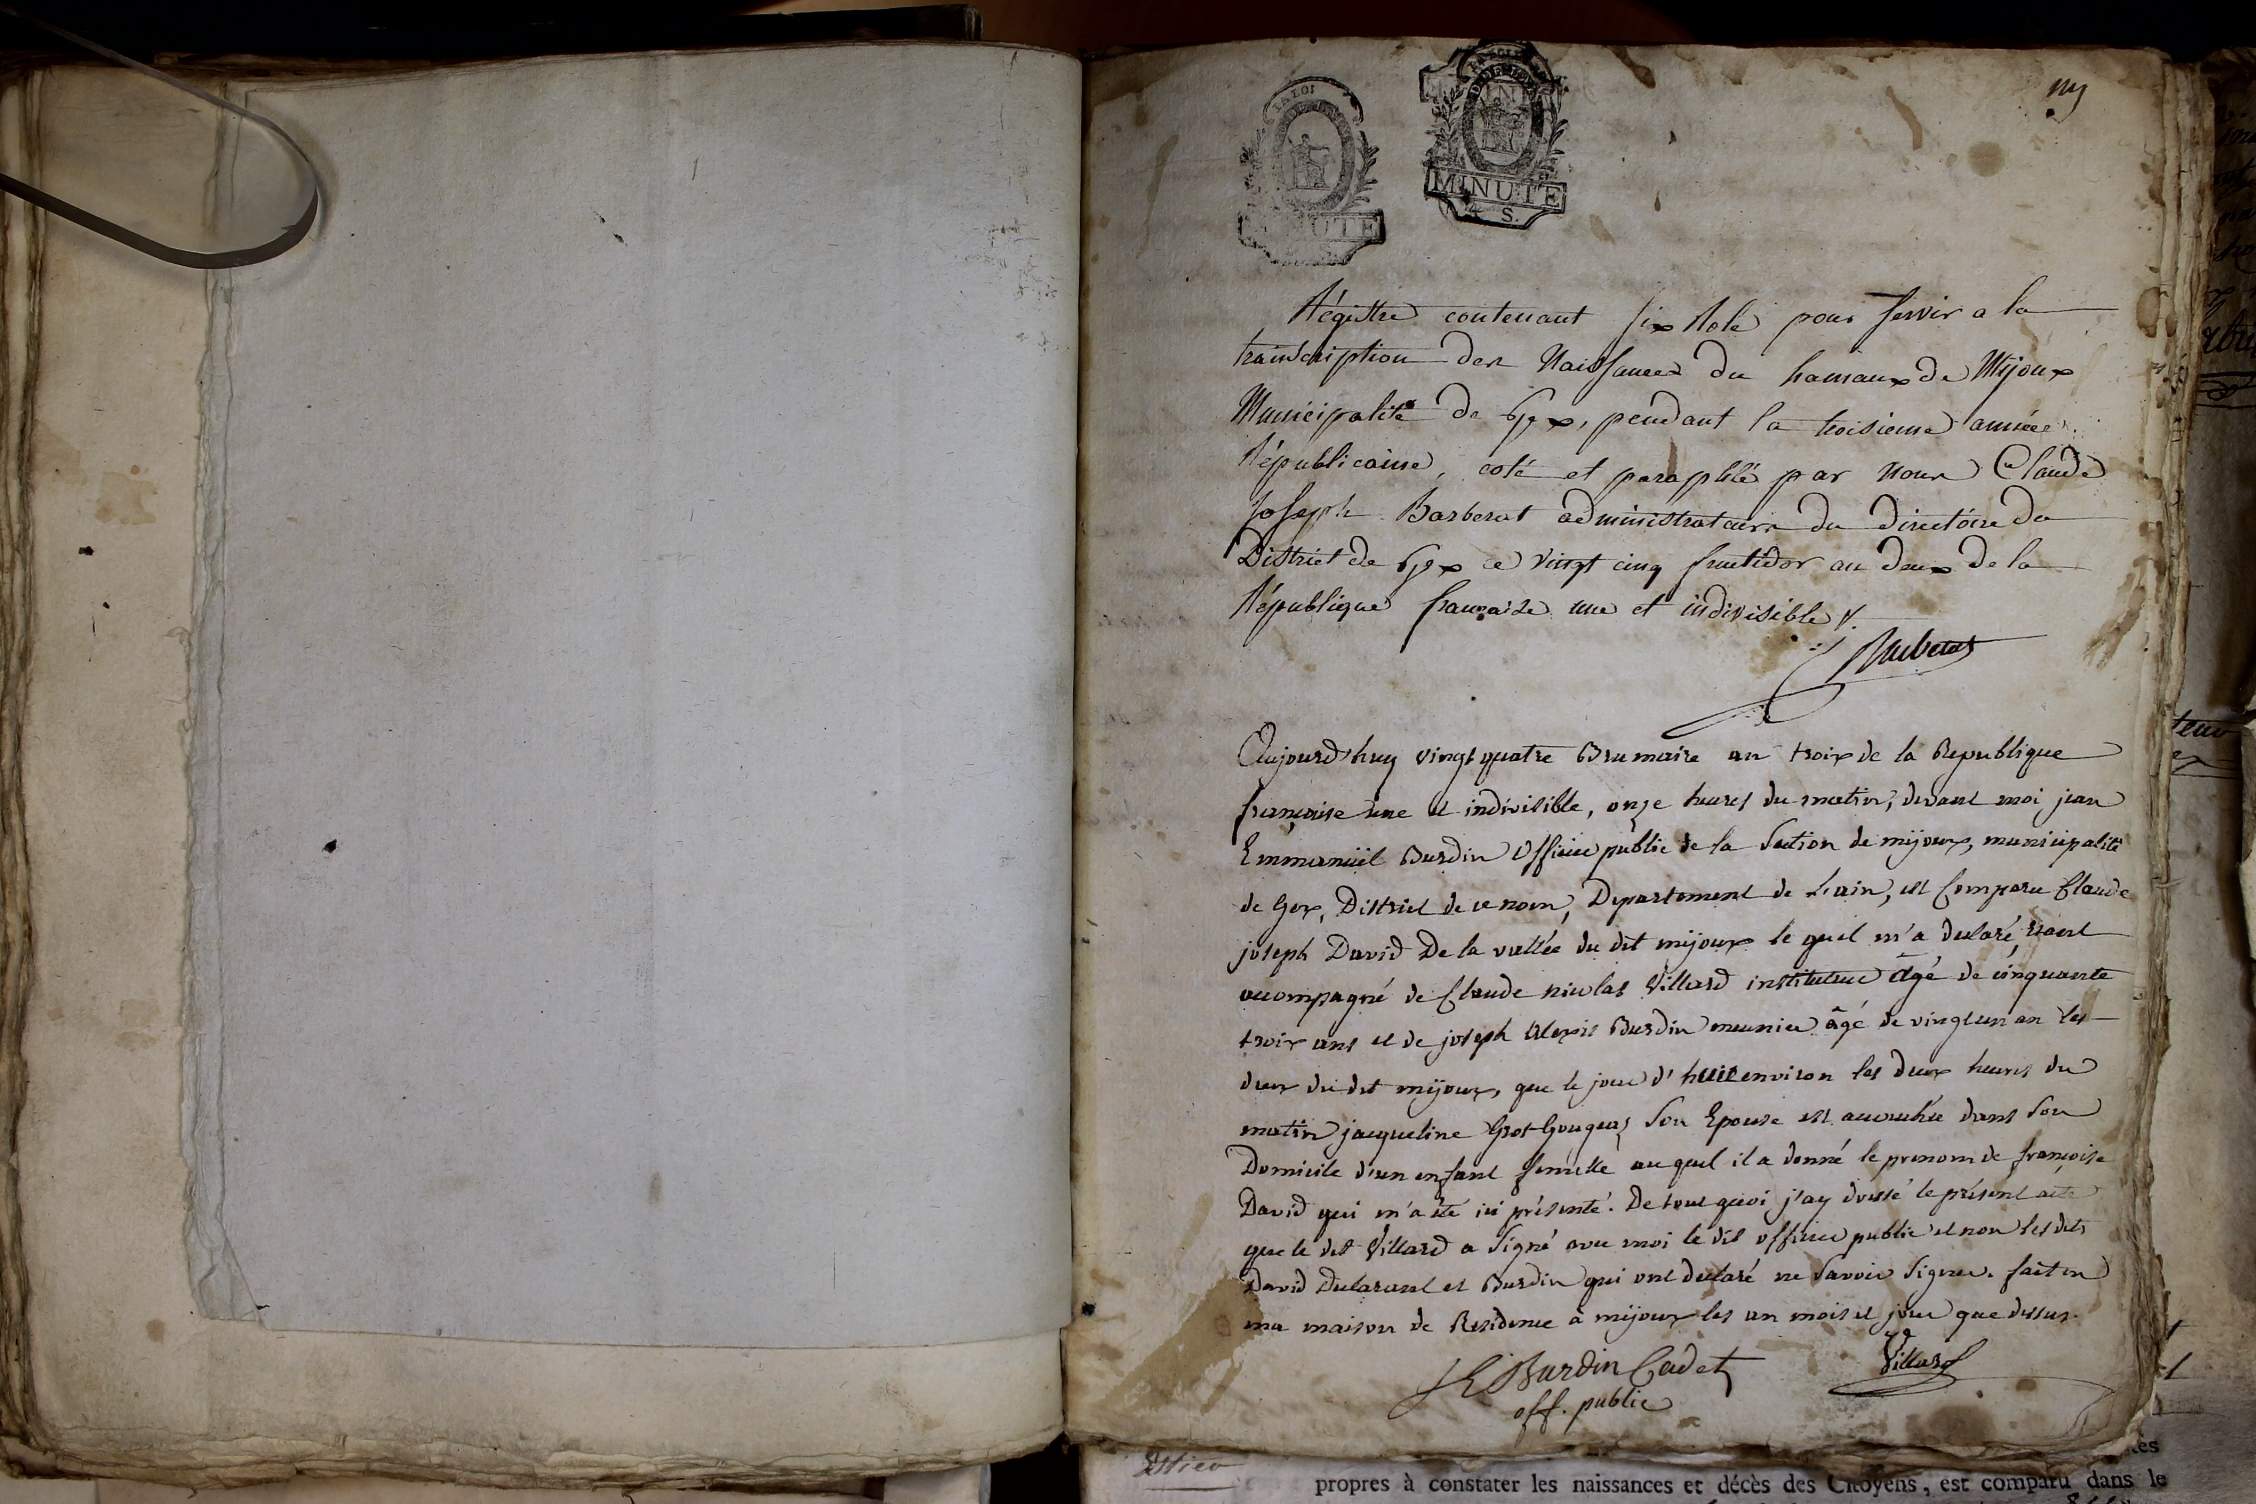 LA LOI
MINUTE
MINUTE
4 S.
Régittre contenant six Role pour servir a la
transcription des Naissances du hamaux de Mijoux
Municipalité de Gex, pendant la troisieme année
Républicaine, coté et paraphié par nous Claude
Joseph Barberat administrateurs du directoire du
District de Gex ce vingt cinq fructidor an deux de la
République française une et indivisible
Barberat
Aujourd'huy vingt quatre Brumaire an troix de la Republique
françoise une et indivisible, onze heures du matin, devant moi jean
Emmanüel Burdin Officier public de la Section de mijoux, municipalité
de Gex, District de ce nom, Département de L'ain, est Comparu Claude
joseph David De la vallée du dit mijoux le quel m'a declaré, étant
accompagné de Claude nicolas Villard instituteur âgé de cinquante
troix ans et de joseph Alexis Burdin meunier âgé de vingt un an les
deux du dit mijoux, que le jour d'huit environ les deux heures du
matin jacqueline Gros-Gourgas Son Epouse est accouchée dans Son
Domicile d'un enfant femelle au quel il a donné le prenom de françoise
David qui m'a été ici présenté. De tout quoi j'ay dressé le présent acte
que le dit Villard a Signé avec moi le dit officier public et non les dits
David Déclarant et Burdin qui ont declaré ne Savoir Signer. fait en
ma maison de Residence à mijoux les an mois et jour que dessus.
JE Burdin Cadet
Villard
off. public
propres à constater les naissances et décès des Citoyens, est comparu dans le